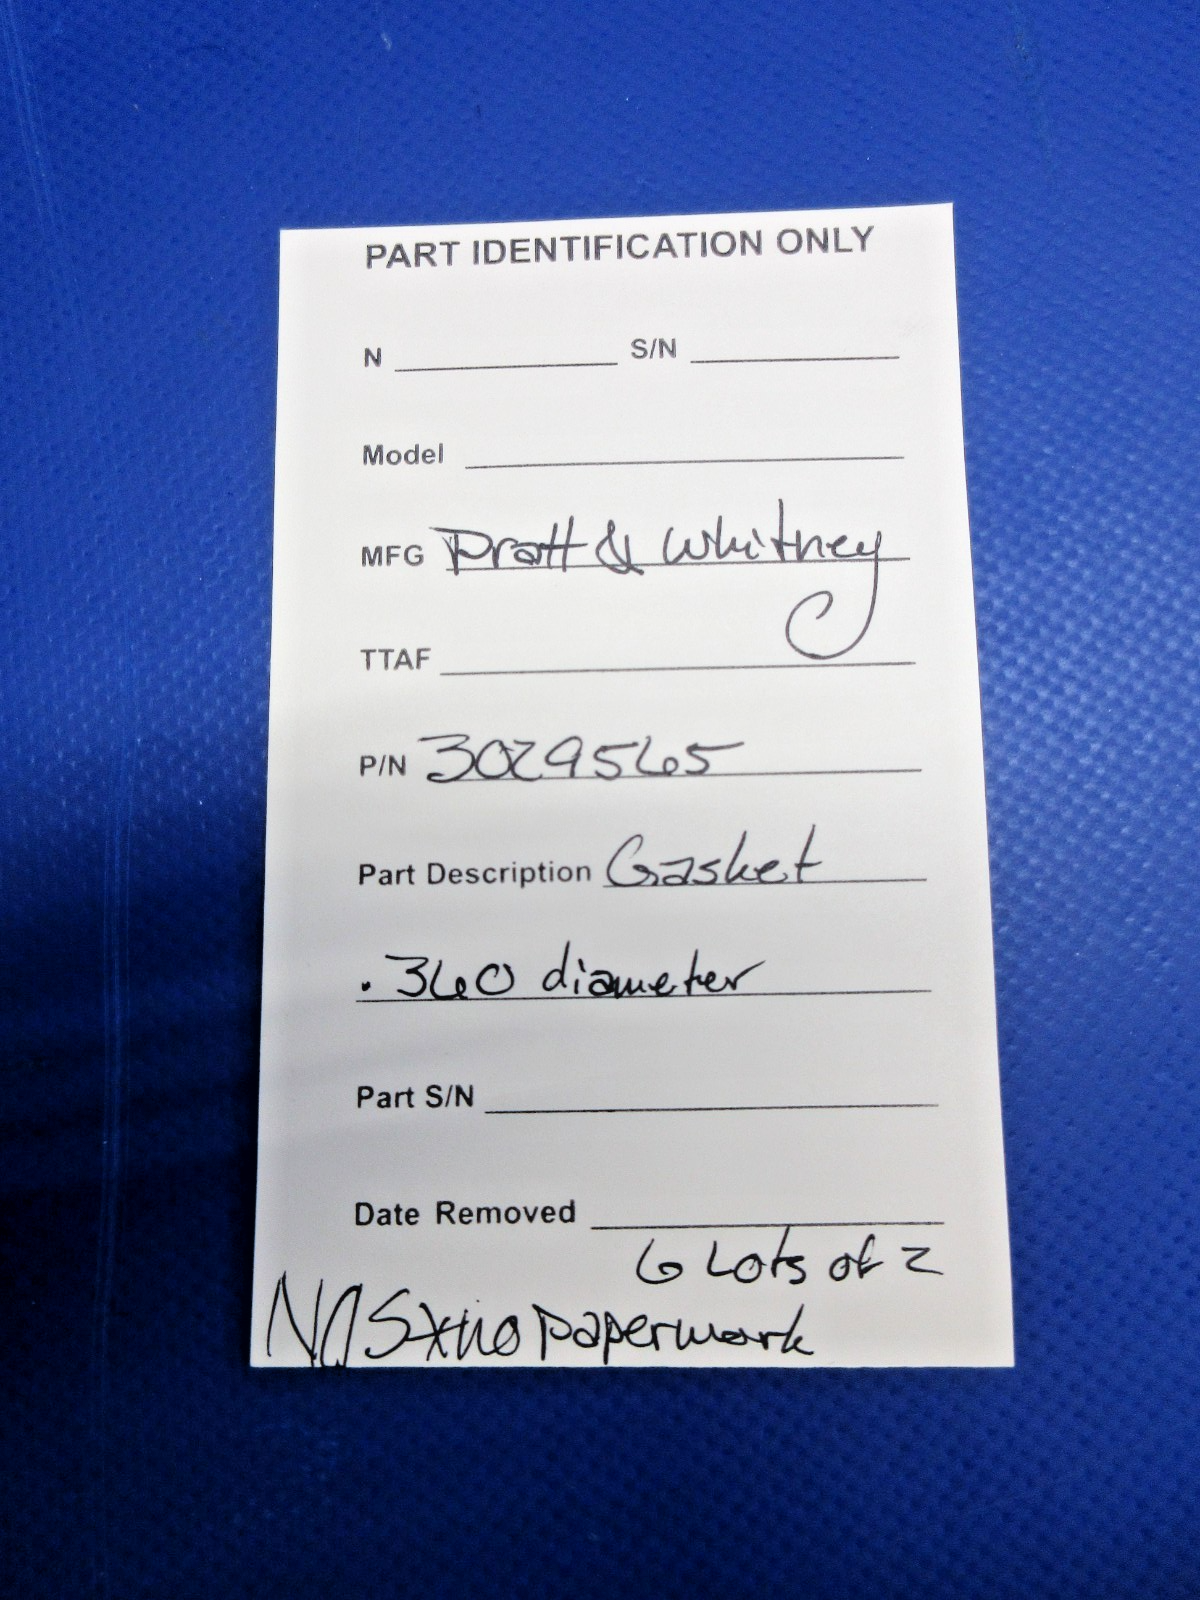 PART IDENTIFICATION ONLY
N S/N
Model
MFG Pratt & Whitney
TTAF
P/N 3029565
Part Description Gasket
.360 diameter
Part S/N
Date Removed
6 Lots of 2
NOS no paperwork